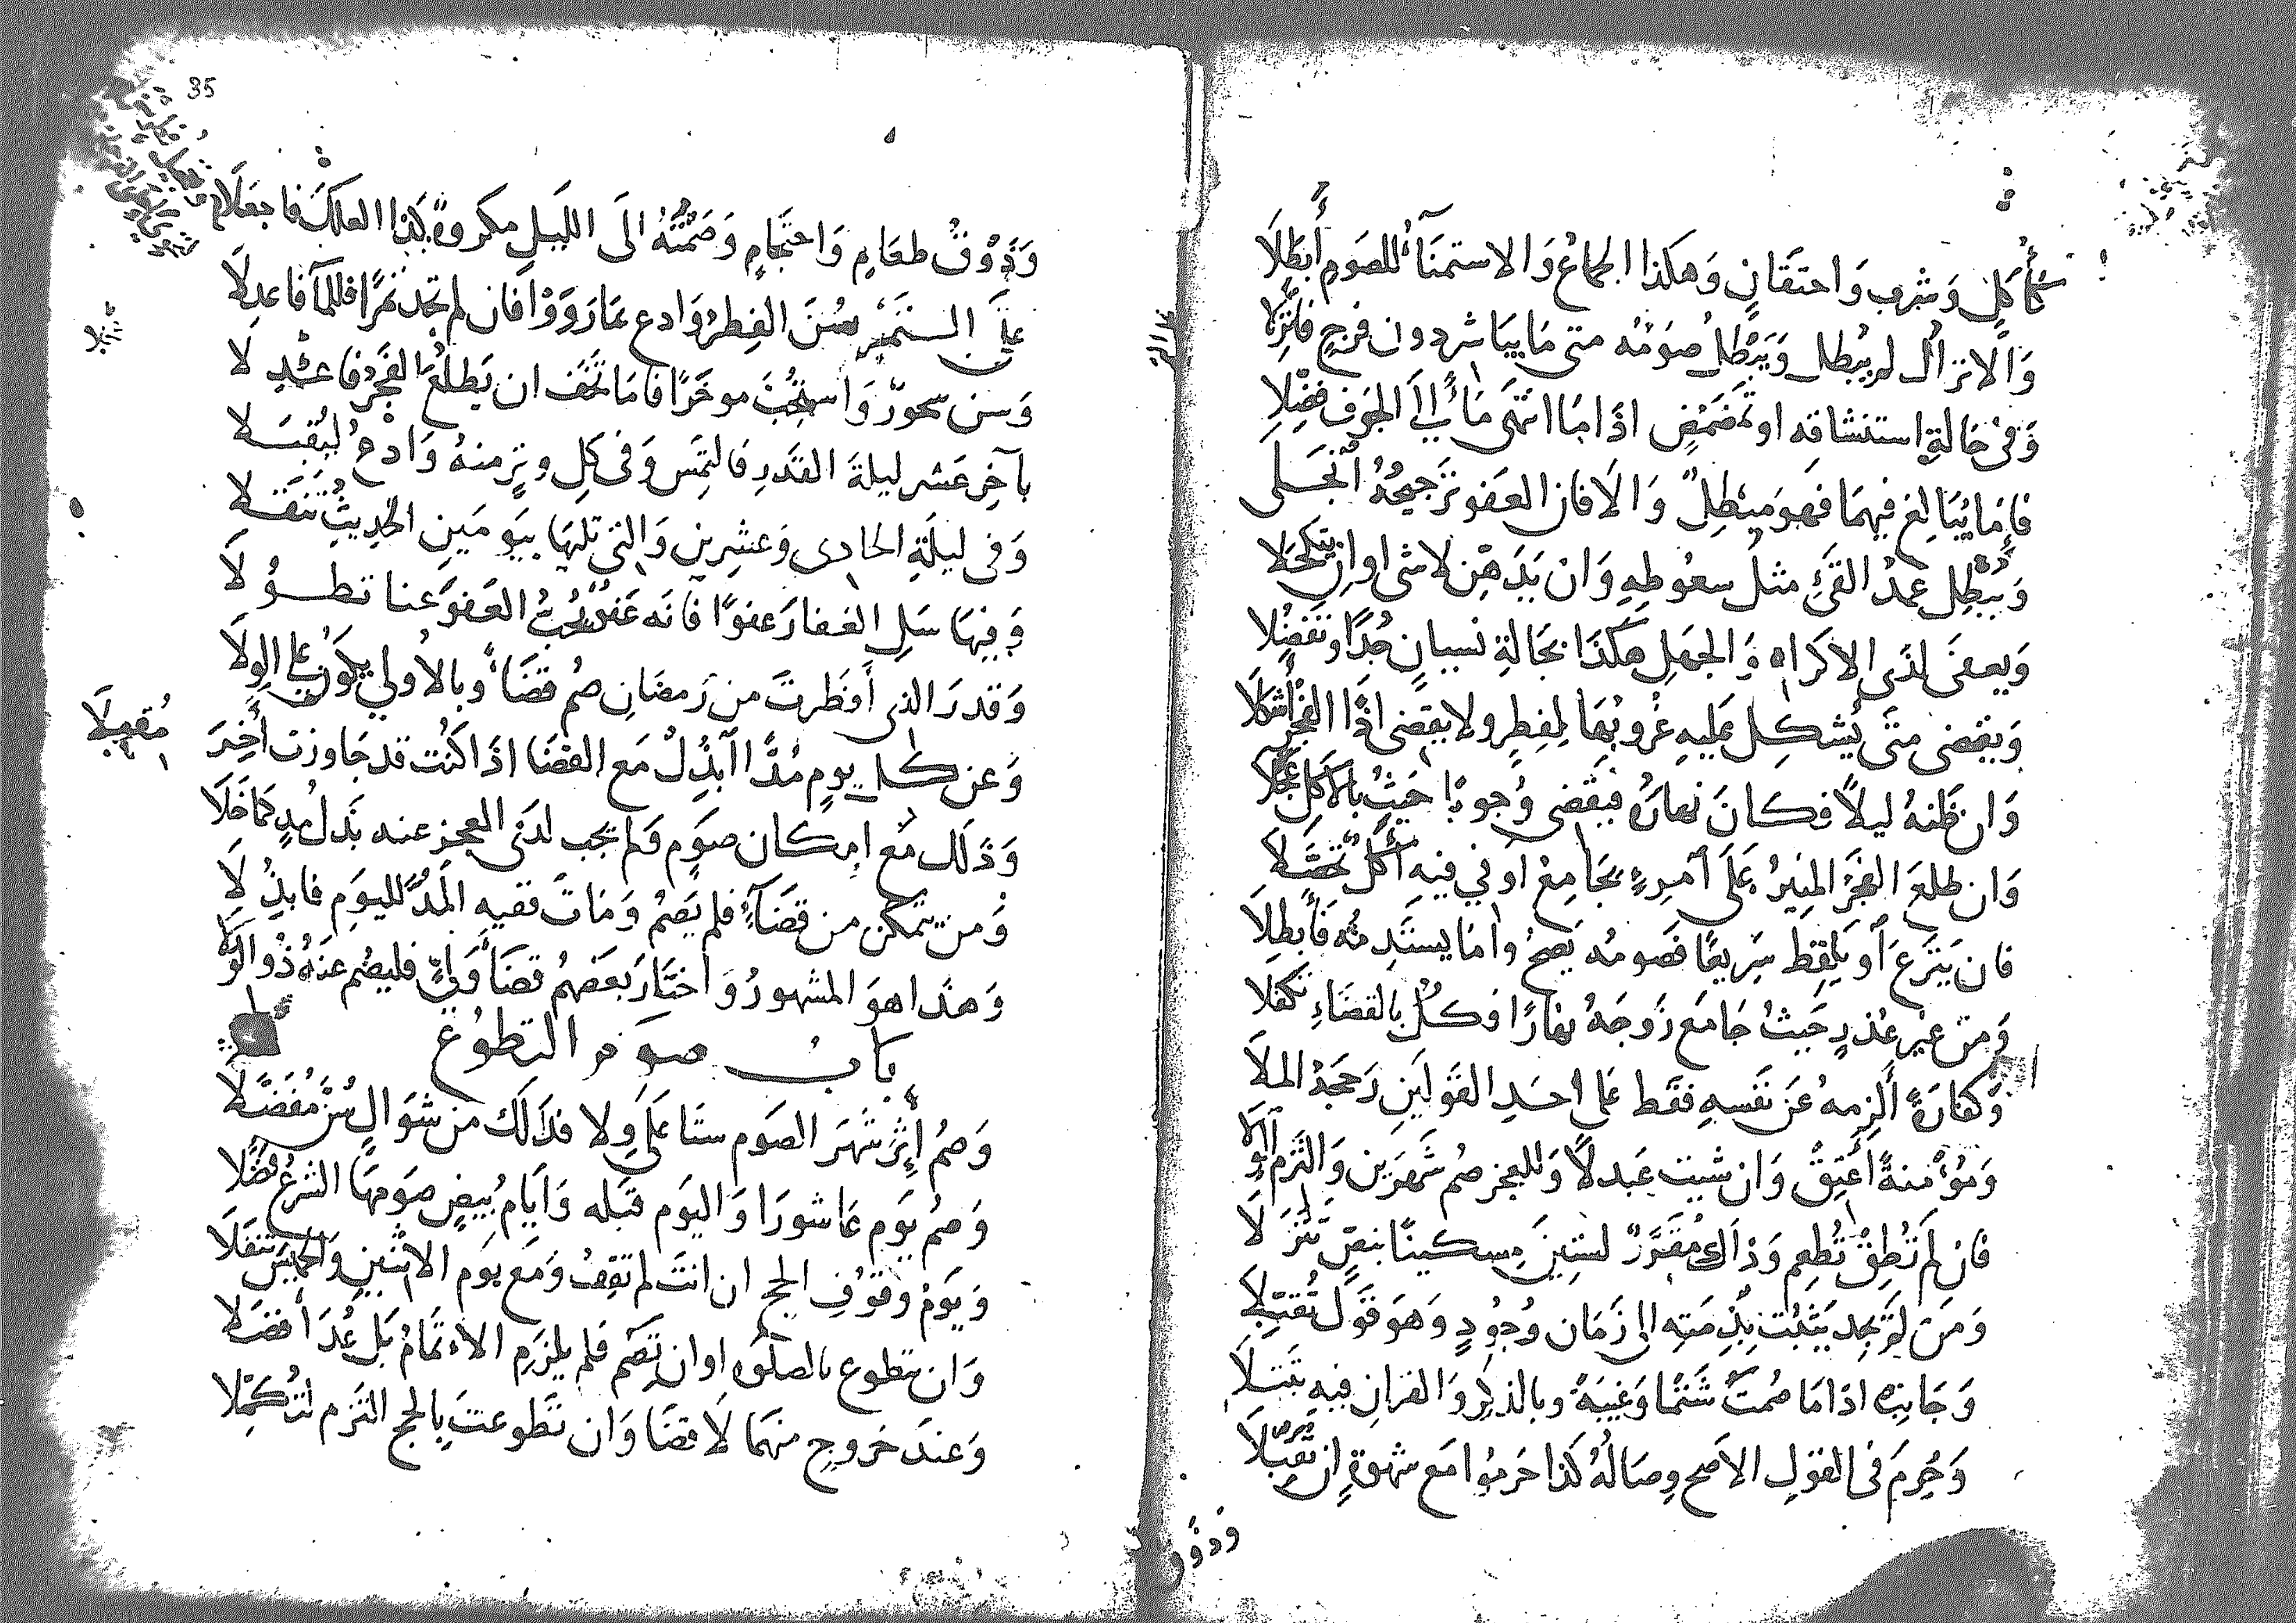 كأكل وشرب واحتقان وهكذا الجماع والاستمناء للصوم أبطلا
والانزال لم يبطل ويبطل صومه متى ما يباشر دون فرج فانزلا
وفى حالة استنشاقه او تمضمض اذا ما انتهى ماء الى الجوف فضلا
فإما يبالغ فيهما فهو مبطل والا فان العفو ترجيحه انجلى
ويبطل عمد القئ مثل سعوطه وان يدهن لا شى او ان يتكحلا
ويعفى لذى الاكراه والجهل هكذا بحالة نسيان جدا وتفضلا
ويقضى متى يشكل عليه غروبها لمفطر ولا يقضى اذا الفجر أشكلا
وان ظنه ليلا فكان نهاره فيقضى وجوبا حيث بالاكل عجلا
وان طلع الفجر المنير على امرء بجامع او في فيه أكل تحصلا
فان ينزع او يلقط سريعا فصومه يصح واما يستدمه فأبطلا
ومن غير عذر حيث جامع زوجه نهارا فكل بالقضاء تكفلا
وكفارة ألزمه عن نفسه فقط على احد القولين رجحه الملا
ومؤمنة أعتق وان شيت عبدلا وللعجز صم شهرين والتزم الولا
فان لم تطق تطعم وذاك مقرر لستين مسكينا بنص تنزلا
ومن لم يجد يثبت بذمته الى زمان وجود وهو قول تقبلا
وجانب اذا ما صمت شتما وغيبة وبالذكر والقران فيه تبتلا
وحرم فى القول الاصح وصاله كذا حرموا مع شهوة ان تقبلا
وذوق
35
وذوق طعام واحتجام وصمته الى الليل مكروه كذا العلك فاجعلا
على التمر سن الفطر وادع بما رووا فان لم تجد تمرا فللماء فاعدلا
وسن سحور واستحب موخرا فاما تخف ان يطلع الفجر فاعد لا
بآخر عشر ليلة القدر فالتمس وفى كل وتر منه وادع ليقبلا
وفى ليلة الحادى وعشرين والتي تلها بيومين الحديث تنقلا
وفيها سل الغفار عفوا فانه عفو يحب العفو عنا تطولا
وقدر الذى أفطرت من رمضان صم قضاء وبالاولي يكون على الولا
وعن كل يوم مدا ابذل مع القضا اذا كنت قد جاوزت أخر
مقبلا
وذلك مع امكان صوم ولم يجب لدى العجز عنه بذل مد كما خلا
ومن يتمكن من قضاء فلم يصم ومات ففيه المد لليوم فابذلا
وهذا هو المشهور واختار بعضهم قضاء ولي فليصم عنه ذو الولا
باب صوم التطوع
وصم إثر شهر الصوم ستا على ولا فذلك من شوال سن مفضلا
وصم يوم عاشورا واليوم قبله وايام بيض صومها الشرع فضلا
ويوم وقوف الحج ان انت لم تقف ومع يوم الاثنين والخميس تنفلا
وان تطوع بالصلوة او ان تصم فلم يلزم الاتمام بل عد أفضلا
وعند خروج منهما لا قضا وان تطوعت بالحج التزم لتكملا